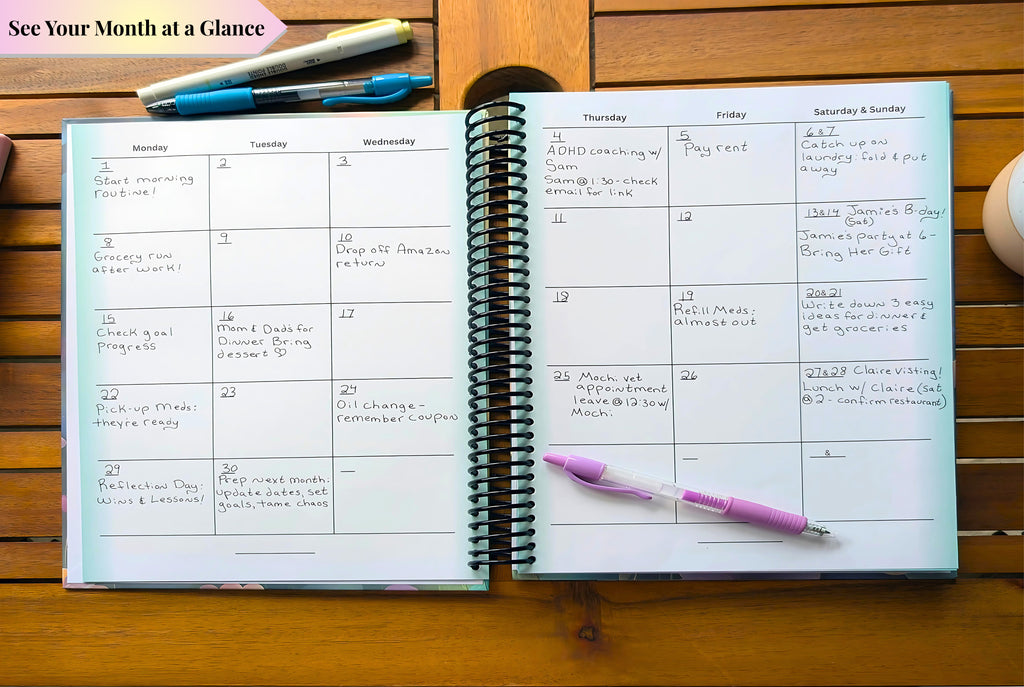 See Your Month at a Glance
Monday
Tuesday
Wednesday
1
Start morning
routine!
2
3
8
Grocery run
after work!
9
10
Drop off Amazon
return
15
Check goal
progress
16
Mom & Dad's for
Dinner Bring
dessert ♡
17
22
Pick-up Meds:
theyre ready
23
24
Oil change-
remember coupon
29
Reflection Day:
Wins & Lessons!
30
Prep next month:
update dates, set
goals, tame chaos
Thursday
Friday
Saturday & Sunday
4
ADHD coaching w/
Sam
5am @ 1:30-check
email for link
5
Pay rent
6 & 7
Catch up on
laundry: fold & put
away
11
12
13 & 14 Jamie's B-day!
(Sat)
Jamie's party at 6-
Bring Her Gift
18
19
Refill Meds:
almost out
20 & 21
Write down 3 easy
ideas for dinner &
get groceries
25 Mochi vet
appointment
leave @ 12:30 w/
Mochi
26
27 & 28 Claire visting!
Lunch w/ Claire (sat
@ 2 - confirm restaurant)
&